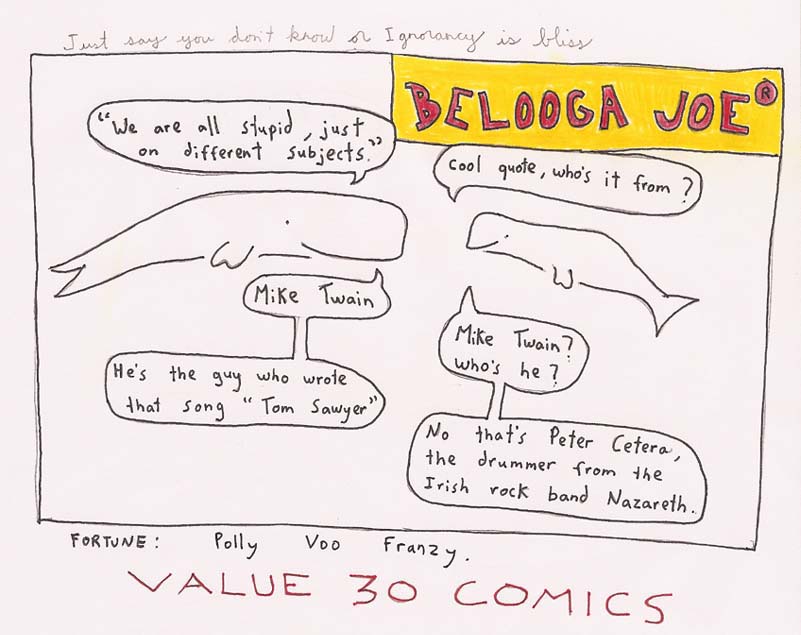 Just say you don't know or Ignorancy is bliss
BELOOGA JOE®
"We are all stupid, just
on different subjects."
Cool quote, who's it from?
Mike Twain
He's the guy who wrote
that song "Tom Sawyer"
Mike Twain?
who's he?
No that's Peter Cetera,
the drummer from the
Irish rock band Nazareth.
FORTUNE: Polly Voo Franzy.
VALUE 30 COMICS